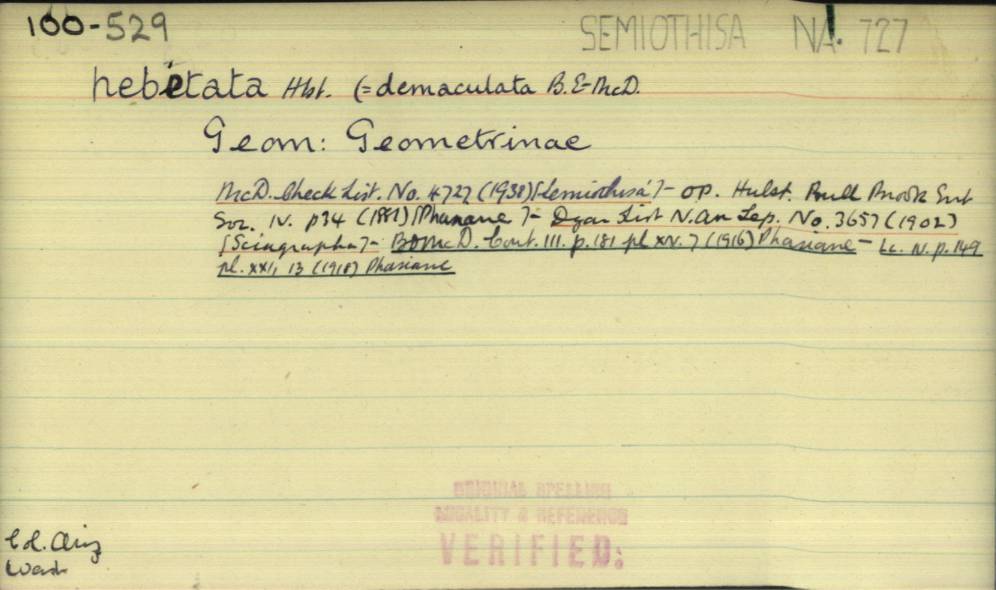 100-529
SEMIOTHISA NA. 727
hebetata Hlst. (= demaculata B. & McD.
Geom: Geometrinae
McD. Check List. No. 4727 (1938) [Semiothisa] - op. Hulst. Bull Brook Ent
Soc. IV. p34 (1881) [Phasiane] - Dyar List N. Am Lep. No. 3657 (1902)
[Sciagrapha] - B & McD. Cont. III. p. 181 pl XV. 7 (1916) Phasiane - Lc. IV. p. 149
pl. XXI, 13 (1918) Phasiane
ORIGINAL SPELLING
LOCALITY & REFERENCE
VERIFIED:
Col. Ariz